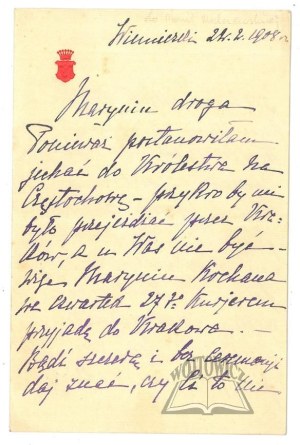 22.2.1908
Maryniu droga
Ponieważ postanowiłam
jechać do Królestwa na
Częstochowę - przykro by mi
było przejeżdżać przez Kra-
ków, a u Was nie być -
więc Maryniu Kochana
we czwartek 27 Kurjerem
przyjadę do Krakowa. -
Bądź szczerą i bez ceremonji
daj znać, czy Ci to nie
WÓJTOWICZ